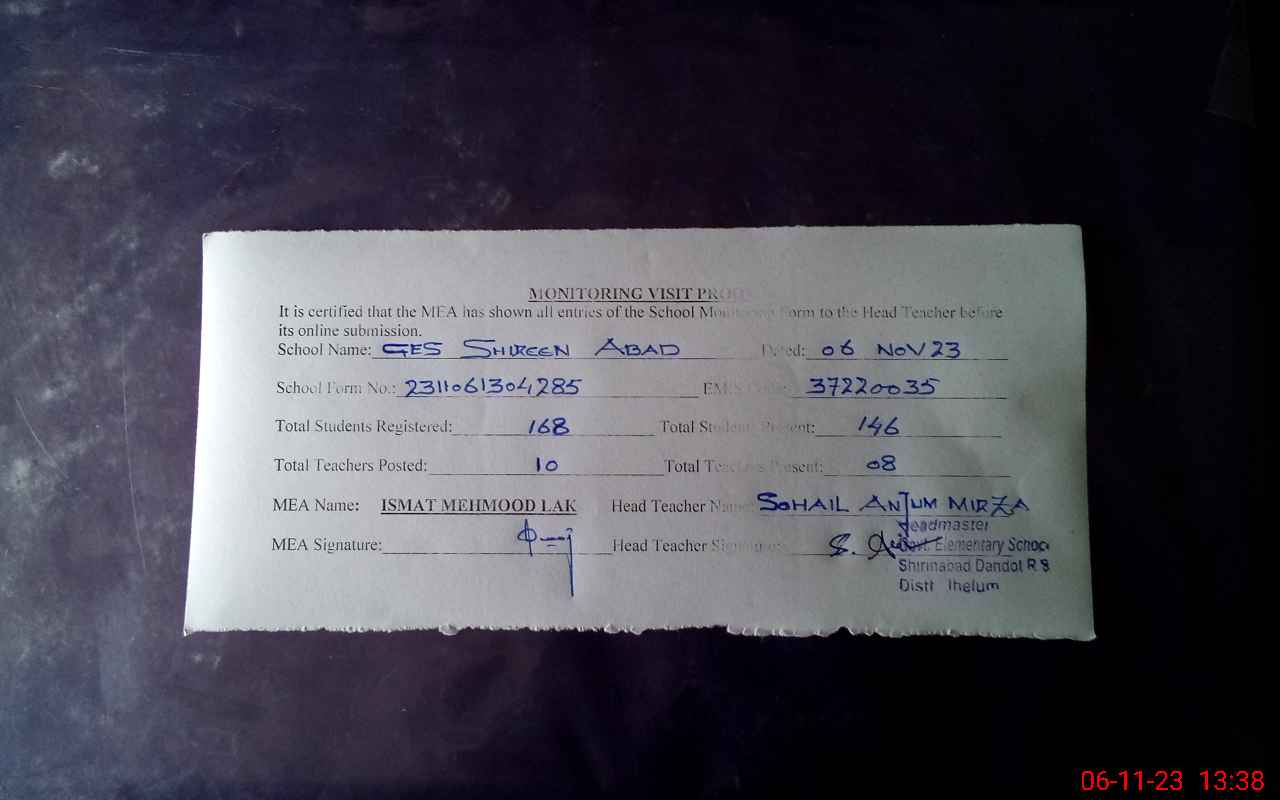 MONITORING VISIT PROOF
It is certified that the MEA has shown all entries of the School Monitoring Form to the Head Teacher before
its online submission.
School Name: GES SHIREEN ABAD Dated: 06 NOV 23
School Form No.: 2311061304285 EMIS Code: 37220035
Total Students Registered: 168 Total Students Present: 146
Total Teachers Posted: 10 Total Teachers Present: 08
MEA Name: ISMAT MEHMOOD LAK Head Teacher Name: SOHAIL ANJUM MIRZA
Headmaster
MEA Signature: Head Teacher Signature: S.
Govt. Elementary School
Shirinabad Dandot R S
Distt Jhelum
06-11-23 13:38